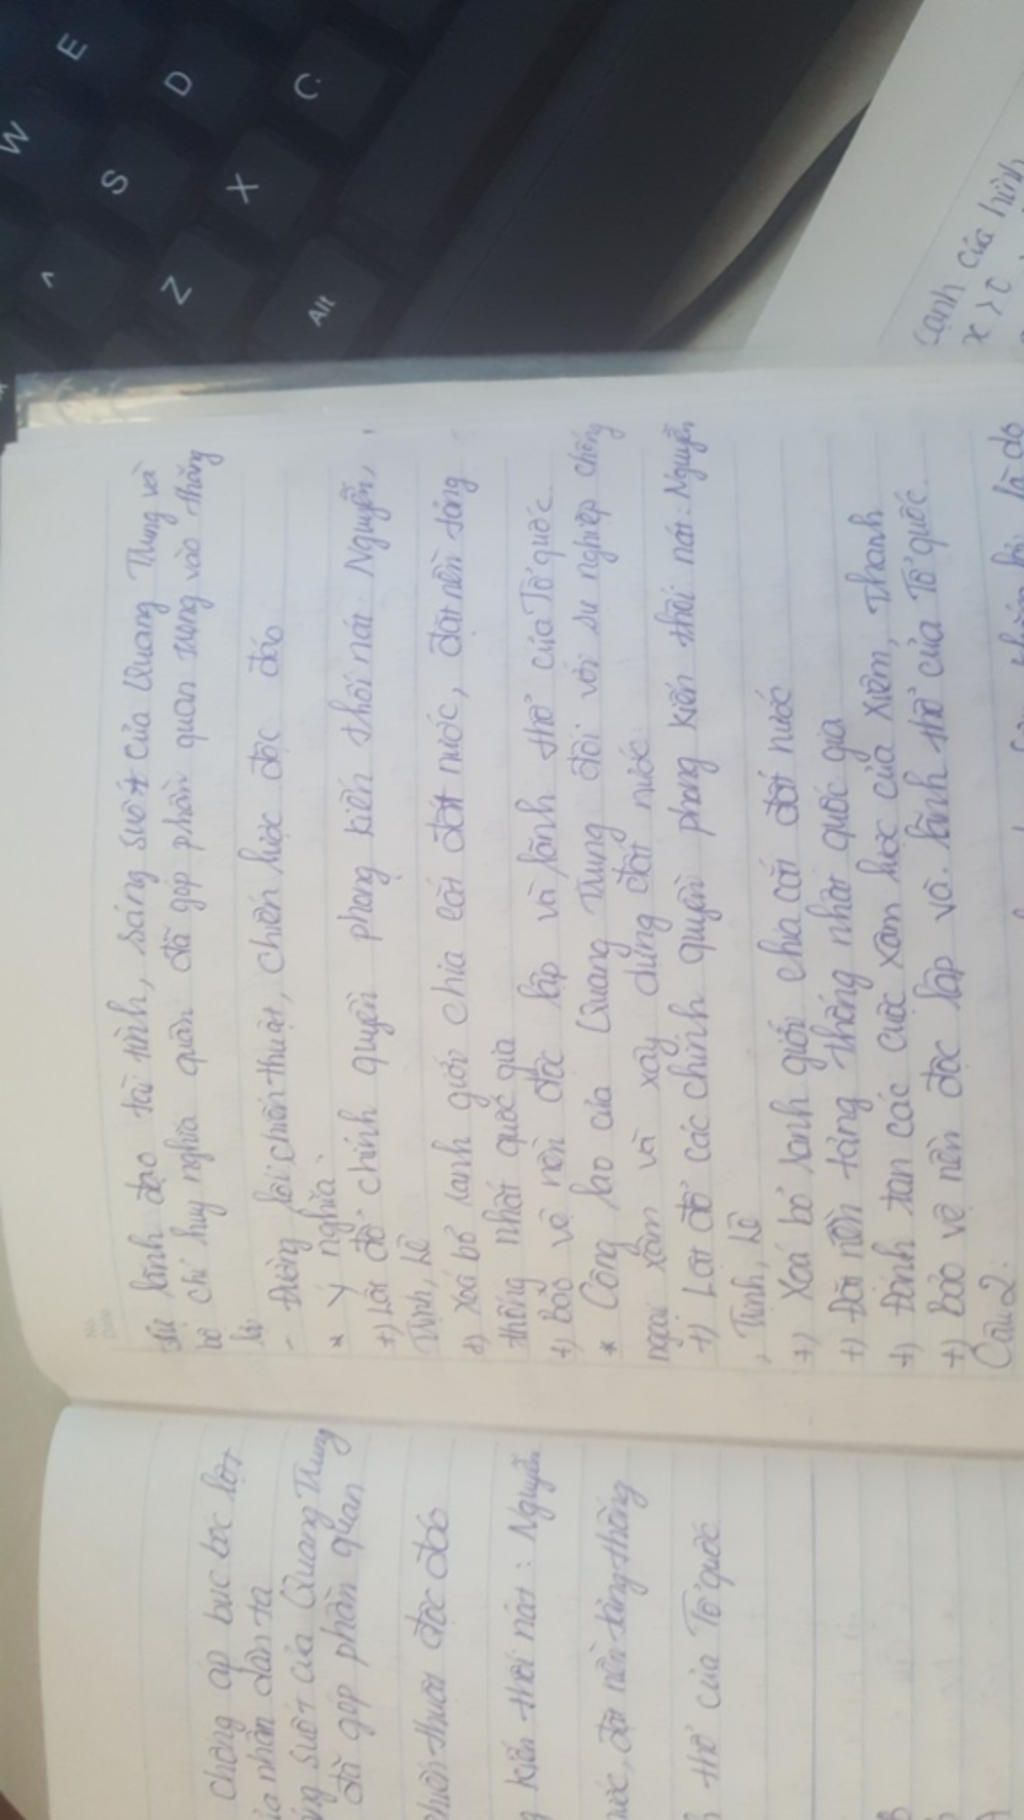 Sự lãnh đạo tài tình, sáng suốt của Quang Trung và
bộ chỉ huy nghĩa quân đã góp phần quan trọng vào thắng
lợi
- Đường lối chiến thuật, chiến lược độc đáo
* Ý nghĩa:
+) Lật đổ chính quyền phong kiến thối nát: Nguyễn,
Trịnh, Lê
+) Xoá bỏ ranh giới chia cắt đất nước, đặt nền tảng
thống nhất quốc gia
+) Bảo vệ nền độc lập và lãnh thổ của Tổ quốc.
* Công lao của Quang Trung đối với sự nghiệp chống
ngoại xâm và xây dựng đất nước
+) Lật đổ các chính quyền phong kiến thối nát: Nguyễn
, Trịnh, Lê
+) Xoá bỏ ranh giới chia cắt đất nước
+) Đặt nền tảng thống nhất quốc gia
+) Đánh tan các cuộc xâm lược của Xiêm, Thanh
+) Bảo vệ nền độc lập và lãnh thổ của Tổ quốc.
Câu 2:
là do
chống áp bức bóc lột
nhân dân ta
suốt của Quang Trung
đã góp phần quan
thuật độc đáo
kiến thối nát: Nguyễn
đặt nền tảng thống
thổ của Tổ quốc
cạnh của hình
x > 0
W E
S D
Z X C
Alt